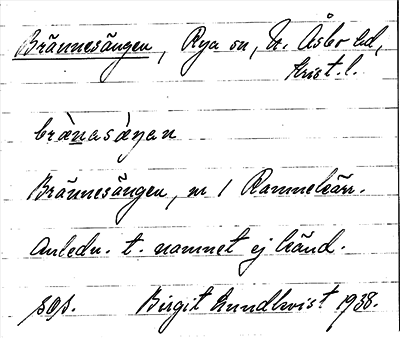 Brännesängen, Rya sn, N. Åsbo hd,
Krist. l.
brä̀nasäŋan
Brännesängen, nr 1 Ramnekärr.
Anledn. t. namnet ej känd.
Birgit Lundkvist 1938.